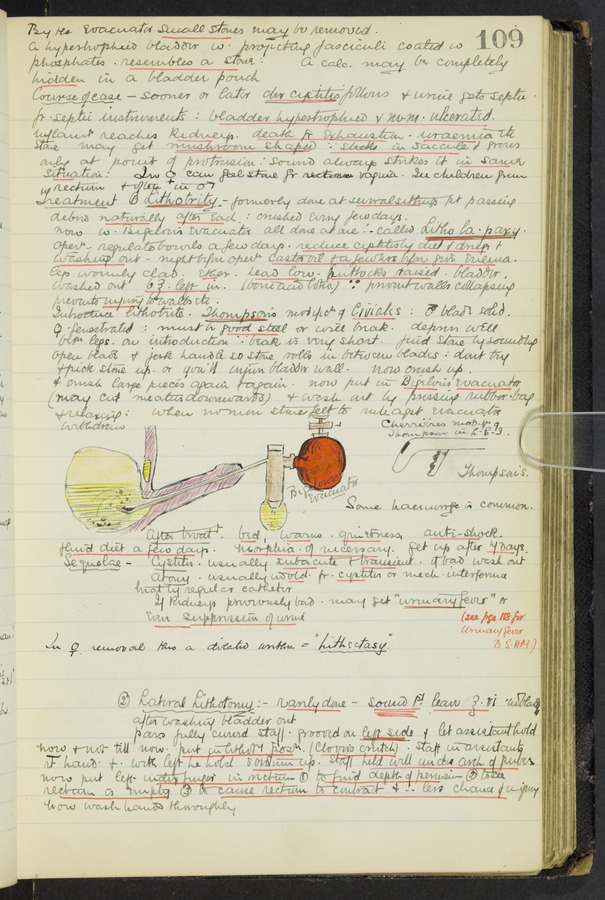 109
By the Evacuator small stones may be removed.
A hypertrophied bladder w. projecting fasciculi coated w
phosphates resembles a stone: A calc. may be completely
hidden in a bladder pouch
Course of case - sooner or later chr cystitis follows & urine gets septic
fr. septic instruments : bladder hypertrophied & m.m. ulcerated.
inflamt reaches kidneys. death fr exhaustion - uraemia etc
Stone may get mushroom shaped : sticks in saccule & grows
only at point of protrusion : Sound always strikes it in same
situation : In ♀ can feel stone fr vagina. In children from
rectum & often in ♂
Treatment ① Lithotrity - formerly done at several sittings pt passing
debris naturally after each : crushed every few days.
now w. Bigelow's Evacuator all done at one : called Litho la. paxy.
Opern - regulate bowels a few days. reduce cystitis by diet & drugs &
washing out - night bfr opern Castor oil & a few hrs bfr give Enema.
legs warmly clad. ether. head low. buttocks raised - bladder
washed out 6 ℥ left in. (boracic lotio) ∵ prevents walls collapsing
prevents injury to walls etc.
Introduce lithotrite. Thompson's modifctn of Civiale's : ♂ blade solid.
♀ fenestrated : must be good steel or will break. depress well
btn legs. on introduction ∵ beak is very short. find stone by sounding
open blades & jerk handle so stone rolls in between blades : dont try
& pick stone up. or you'll injure bladder wall - now crush up.
& crush large pieces again & again. now put in Bigelow's evacuator
(may cut meatus downwards) & wash out by pressing rubber-bag
& relaxing : when no more stone felt to rule agst evacuator
withdraw
Charrière's modifn of
Thompson in L.E.S.
Thompson's.
Bigelow's
Evacuator
Some haemorrge is common.
After treatt. bed, warms. quietness anti-shock.
fluid diet a few days. Morphia if necessary. Get up after 7 days.
Sequelae - Cystitis. usually subacute & transient. if bad wash out
Atony. usually avoid fr. cystitis or mech. interference
treat by regular catheter
If kidneys previously bad - may get "urinary fever" or
Even suppression of urine
(see pge 188 for
Urinary fever
In ♀. removal thro a dilated urethra = "Lithectasy"
② Lateral Lithotomy :- rarely done - Sound pt leave ℥. vi in bladdr
after washing bladder out
pass fully curved staff - grooved on left side & let assistant hold
now & not till now. put in lithoty Posn. (Clover's crutch). Staff in assistants
rt hand & . with left to hold scrotum up. Staff held well under arch of pubes
now put left index finger in rectum ① to find depth of perineum ② to see
rectum is empty ③ to cause rectum to contract & ∴ less chance of injury
Now wash hands thoroughly